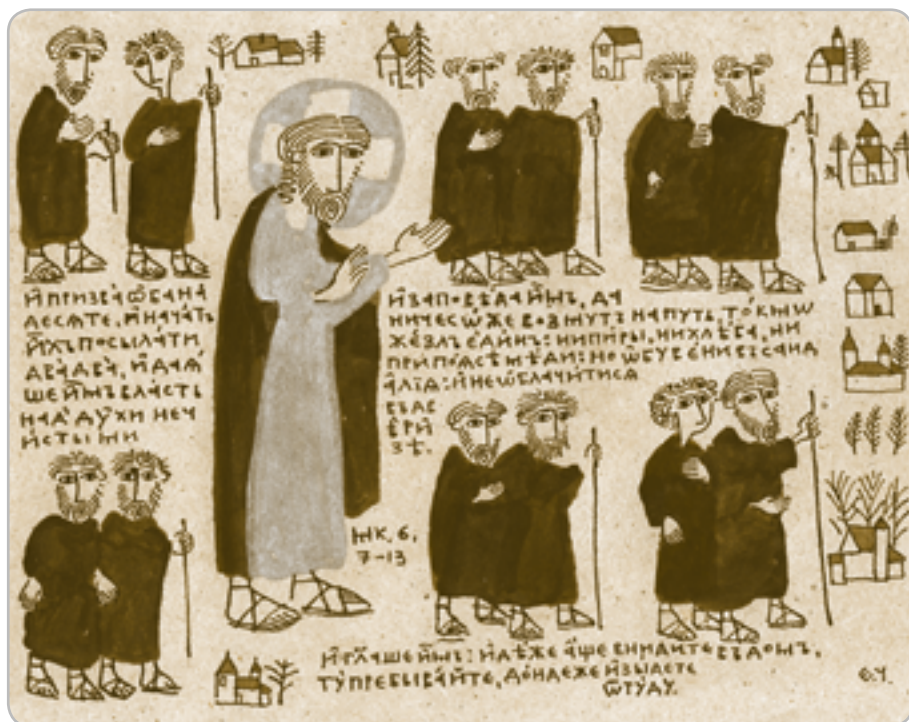 И҆ПРИЗВА̀Ѻ҆БАНА
ДЕСѦТЕ, И҆НАЧА́ТЪ
И҆̀ХЪПОСЫЛА́ТИ
ДВАДВА̀, И҆ДАѦ́
ШЕИ҆̀МЪВЛА́СТЬ
НАД̾ДУ́ХИНЕЧ
И́СТЫМИ
И҆ЗАПОВѢ́ДАИ҆̀МЪ, ДА
НИЧЕСѠ́ЖЕВОЗМУТЪНАПУТЬ, ТО́КМѠ
ЖЕ́ЗЛЪЕ҆ДИ́НЪ: НИПИРЫ, НИХЛѢ́БА, НИ
ПРИПО́ѦСѢМѢ́ДИ: НОѠ҆БУВЕ́НИВЪСАНД
А́ЛІѦ: И҆НЕѠ҆БЛАЧИ́ТИСѦ
ВЪДВ
ѢРИ́
ЗѢ.
МК. 6,
7-13
И҆ГЛ҃АШЕИ҆̀МЪ: И҆ДѢ́ЖЕА҆́ЩЕВНИДИТЕВЪДОМЪ,
ТУ̀ПРЕБЫВА́ЙТЕ, ДО́НДЕЖЕИ҆ЗЫДЕТЕ
ѾТУДУ.
Ѳ.Ч.